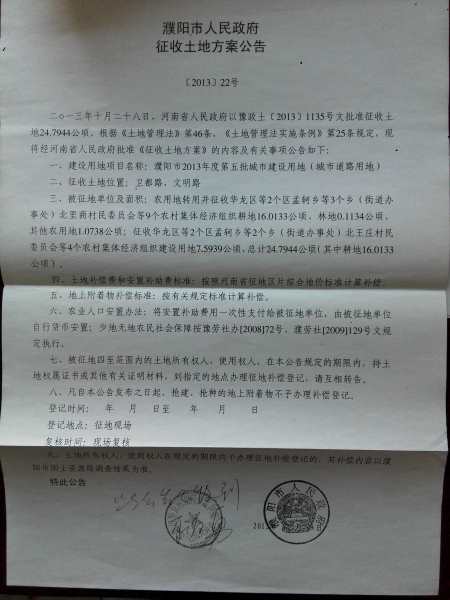 濮阳市人民政府
征收土地方案公告
〔2013〕22号
二〇一三年十月二十八日，河南省人民政府以豫政土〔2013〕1135号文批准征收土
地24.7944公顷，根据《土地管理法》第46条、《土地管理法实施条例》第25条规定，现
将经河南省人民政府批准《征收土地方案》的内容及有关事项公告如下：
一、建设用地项目名称：濮阳市2013年度第五批城市建设用地（城市道路用地）
二、征收土地位置：卫都路、文明路
三、被征地单位及面积：农用地转用并征收华龙区等2个区孟轲乡等3个乡（街道办
事处）北里商村民委员会等9个农村集体经济组织耕地16.0133公顷、林地0.1134公顷、
其他农用地1.0738公顷；征收华龙区等2个区孟轲乡等2个乡（街道办事处）北王庄村民
委员会等4个农村集体经济组织建设用地7.5939公顷，总计24.7944公顷（其中耕地16.0133
公顷）。
四、土地补偿费和安置补助费标准：按照河南省征地区片综合地价标准计算补偿。
五、地上附着物补偿标准：按有关规定标准计算补偿。
六、农业人口安置办法：将安置补助费用一次性支付给被征地单位，由被征地单位
自行货币安置；少地无地农民社会保障按豫劳社办[2008]72号、濮劳社[2009]129号文规
定执行。
七、被征地四至范围内的土地所有权人、使用权人，在本公告规定的期限内，持土
地权属证书或其他有关证明材料，到指定的地点办理征地补偿登记，请互相转告。
八、凡自本公告发布之日起，抢建、抢种的地上附着物不予办理补偿登记。
登记时间： 年 月 日至 年 月 日
登记地点：征地现场
复核时间：现场复核
九、土地所有权人、使用权人在规定的期限内不办理征地补偿登记的，其补偿内容以濮
阳市国土资源局调查结果为准。
特此公告
濮阳市人民政府
201